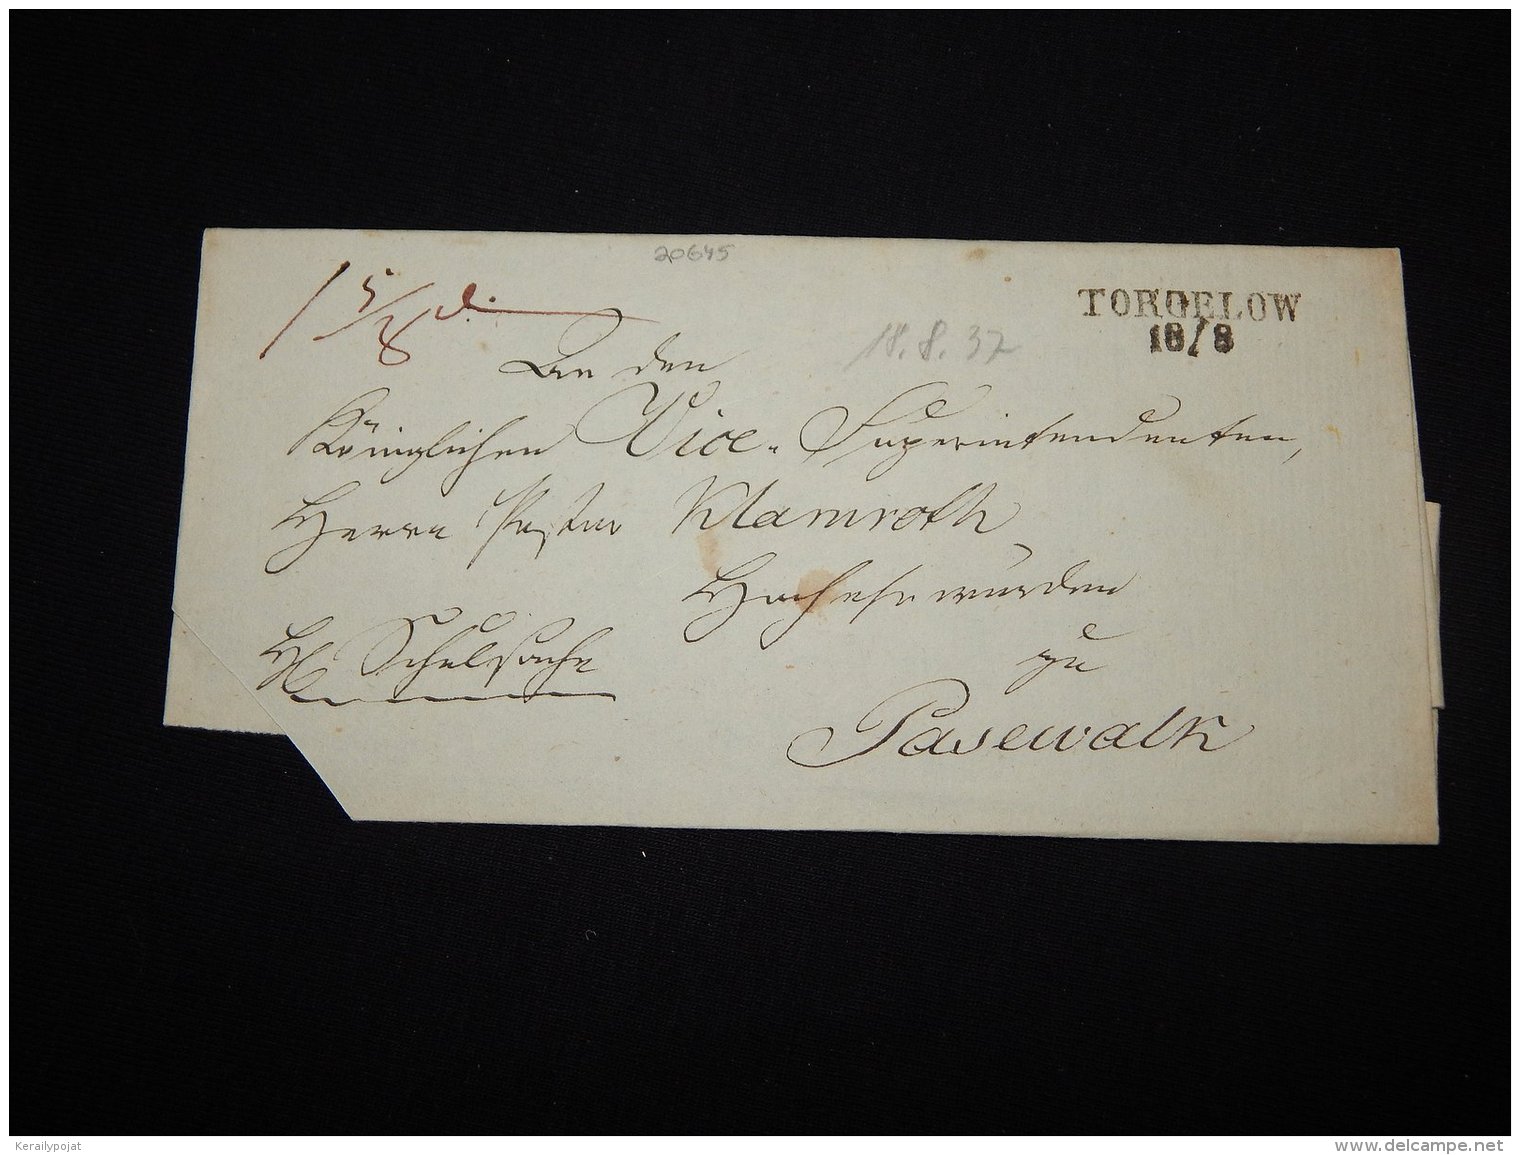 20645
TORGELOW
18/8
18.8.37
An den
Königlichen Vice-Superintendenten,
Herrn Pastor Klamroth
Hochehrwürden
zu
Schulsache
Pasewalk
Kerailypojat
www.delcampe.net